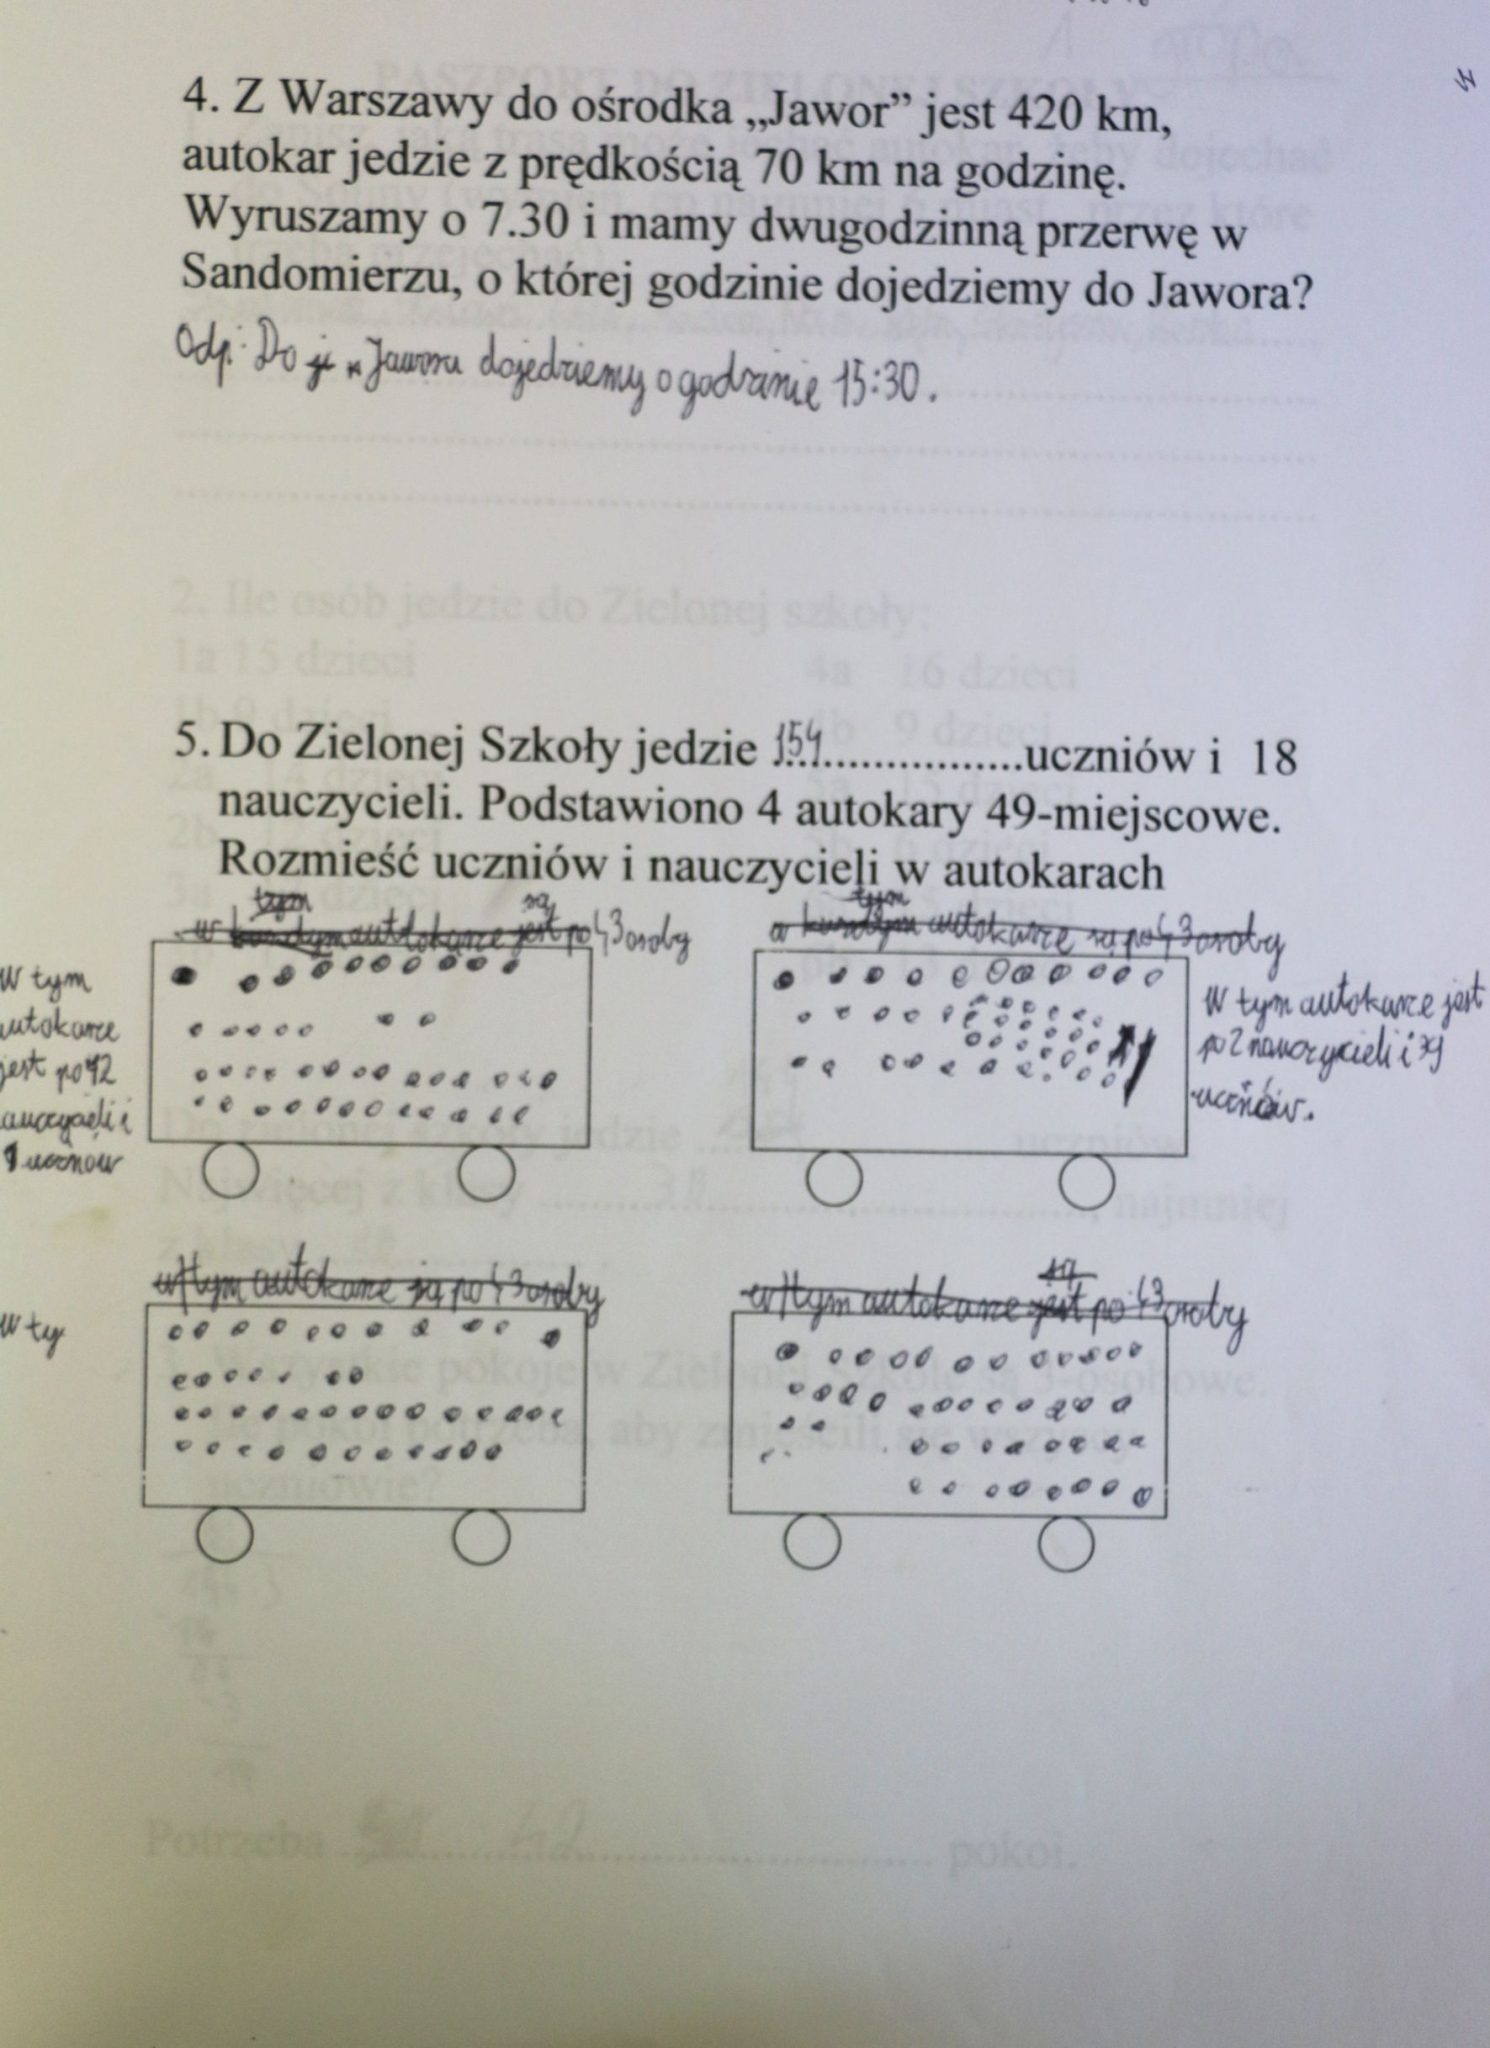 4. Z Warszawy do ośrodka „Jawor” jest 420 km,
autokar jedzie z prędkością 70 km na godzinę.
Wyruszamy o 7.30 i mamy dwugodzinną przerwę w
Sandomierzu, o której godzinie dojedziemy do Jawora?
Odp: Do Jawora dojedziemy o godzinie 15:30.
2. Ile osób jedzie do Zielonej szkoły:
1a 15 dzieci 4a 16 dzieci
4b 9 dzieci
5. Do Zielonej Szkoły jedzie 154 uczniów i 18
nauczycieli. Podstawiono 4 autokary 49-miejscowe.
Rozmieść uczniów i nauczycieli w autokarach
tym są tym
w autokarze jest po 43 osoby
autokarze są po 43 osoby
W tym
autokarze
jest po
W tym autokarze jest
po 2 nauczycieli i
uczniów.
w tym autokarze są po 43 osoby
są
w tym autokarze jest po 43 osoby
W ty
Potrzeba pokoi.